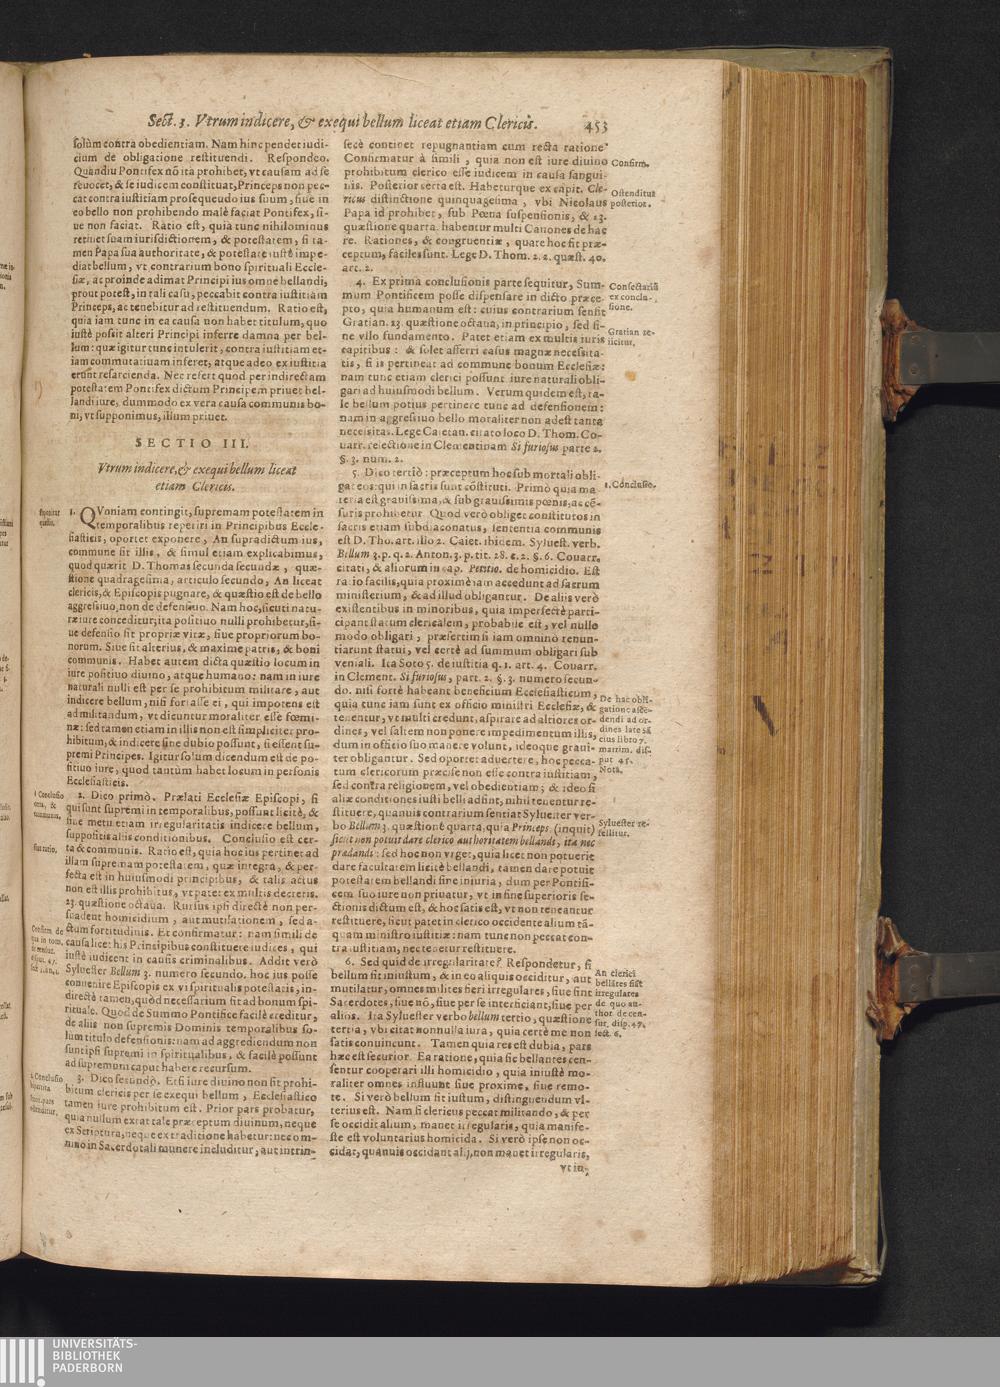 Sect. 3. Vtrum indicere, & exequi bellum liceat etiam Clericis. 453
solùm contra obedientiam. Nam hinc pendet iudi-
cium de obligatione restituendi. Respondeo.
Quandiu Pontifex nō ita prohibet, vt causam ad se
reuocet, & se iudicem constituat, Princeps non pec-
cat contra iustitiam prosequendo ius suum, siue in
eo bello non prohibendo malè faciat Pontifex, si-
ue non faciat. Ratio est, quia tunc nihilominus
retinet suam iurisdictionem, & potestatem, si ta-
men Papa sua authoritate, & potestate iustè impe-
diat bellum, vt contrarium bono spirituali Eccle-
siæ, ac proinde adimat Principi ius omne bellandi,
prout potest, in tali casu, peccabit contra iustitiam
Princeps, ac tenebitur ad restituendum. Ratio est,
quia iam tunc in ea causa non habet titulum, quo
iustè possit alteri Principi inferre damna per bel-
lum: quæ igitur tunc intulerit, contra iustitiam et-
iam commutatiuam inferet, atque adeo ex iustitia
erunt resarcienda. Nec refert quod per indirectam
potestatem Pontifex dictum Principem priuet bel-
landi iure, dummodo ex vera causa communis bo-
ni, vt supponimus, illum priuet.
SECTIO III.
Vtrum indicere, & exequi bellum liceat
etiam Clericis.
1. QVoniam contingit, supremam potestatem in
temporalibus reperiri in Principibus Eccle-
siasticis, oportet exponere, An supradictum ius,
commune sit illis, & simul etiam explicabimus,
quod quærit D. Thomas secunda secundæ, quæ-
stione quadragesima, articulo secundo, An liceat
clericis, & Episcopis pugnare, & quæstio est de bello
aggressiuo, non de defensiuo. Nam hoc, sicuti natu-
ræ iure conceditur, ita positiuo nulli prohibetur, si-
ue defensio sit propriæ vitæ, siue propriorum bo-
norum. Siue sit alterius, & maxime patris, & boni
communis. Habet autem dicta quæstio locum in
iure positiuo diuino, atque humano: nam in iure
naturali nulli est per se prohibitum militare, aut
indicere bellum, nisi fortasse ei, qui impotens est
ad militandum, vt dicuntur moraliter esse fœmi-
næ: sed tamen etiam in illis non est simpliciter pro-
hibitum, & indicere sine dubio possunt, si essent su-
premi Principes. Igitur solum dicendum est de po-
sitiuo iure, quod tantùm habet locum in personis
Ecclesiasticis.
1 Conclusio
certa, &
communis.
2. Dico primò. Prælati Ecclesiæ Episcopi, si
qui sunt supremi in temporalibus, possunt licitè, &
sine metu etiam irregularitatis indicere bellum,
suppositis aliis conditionibus. Conclusio est cer-
ta & communis. Ratio est, quia hoc ius pertinet ad
illam supremam potestatem, quæ integra, & per-
fecta est in huiusmodi principibus, & talis actus
non est illis prohibitus, vt patet ex multis decretis.
23. quæstione octaua. Rursus ipsi directè non per-
suadent homicidium, aut mutilationem, sed a-
ctum fortitudinis. Et confirmatur: nam simili de
causa licet his Principibus constituere iudices, qui
iustè iudicent in causis criminalibus. Addit verò
Syluester Bellum 3. numero secundo, hoc ius posse
conuenire Episcopis ex vi spiritualis potestatis, in-
directè tamen, quòd necessarium sit ad bonum spi-
rituale. Quod de Summo Pontifice facilè creditur,
de aliis non supremis Dominis temporalibus so-
lum titulo defensionis: nam ad aggrediendum non
sunt ipsi supremi in spiritualibus, & facilè possunt
ad supremum caput habere recursum.
2. Conclusio
bipartita.
3. Dico secundò. Etsi iure diuino non sit prohi-
bitum clericis per se exequi bellum, Ecclesiastico
tamen iure prohibitum est. Prior pars probatur,
quia nullum extat tale præceptum diuinum, neque
ex Scriptura, neque ex traditione habetur: nec om-
nino in Sacerdotali munere includitur, aut intrin-
secè continet repugnantiam cum recta ratione.
Confirmatur à simili, quia non est iure diuino
prohibitum clerico esse iudicem in causa sangui-
nis. Posterior certa est. Habeturque ex capit. Cle-
ricus distinctione quinquagesima, vbi Nicolaus
Papa id prohibet, sub Pœna suspensionis, & 23.
quæstione quarta habentur multi Canones de hac
re. Rationes, & congruentiæ, quare hoc sit præ-
ceptum, faciles sunt. Lege D. Thom. 2. 2. quæst. 40.
art. 2.
Confirm.
Ostenditur
posterior.
4. Ex prima conclusionis parte sequitur, Sum-
mum Pontificem posse dispensare in dicto præce-
pto, quia humanum est: cuius contrarium sensit
Gratian. 23. quæstione octaua, in principio, sed si-
ne vllo fundamento. Patet etiam ex multis iuris
capitibus: & solet asserri casus magnæ necessita-
tis, si is pertineat ad commune bonum Ecclesiæ:
nam tunc etiam clerici possunt iure naturali obli-
gari ad huiusmodi bellum. Verum quidem est, ta-
le bellum potius pertinere tunc ad defensionem:
nam in aggressiuo bello moraliter non adest tanta
necessitas. Lege Caietan. citato loco D. Thom. Co-
uarr. relectione in Clementinam Si furiosus parte 2.
§. 3. num. 2.
Consectariū
ex conclu-
sione.
Gratian re-
iicitur.
5. Dico tertiò: præceptum hoc sub mortali obli-
gat eos: qui in sacris sunt cōstituti. Primò quia ma-
teria est grauissima, & sub grauissimis pœnis, ac cē-
suris prohibetur. Quod verò obliget constitutos in
sacris etiam subdiaconatus, sententia communis
est D. Tho. art. illo 2. Caiet. ibidem. Syluest. verb.
Bellum 3. p. q. 2. Anton. 3. p. tit. 28. c. 2. §. 6. Couarr.
citati, & aliorum in cap. Petitio. de homicidio. Est
ratio facilis, quia proximè iam accedunt ad sacrum
ministerium, & ad illud obligantur. De aliis verò
existentibus in minoribus, quia imperfectè parti-
cipant statum clericalem, probabile est, vel nullo
modo obligari, præsertim si iam omnino renun-
tiarunt statui, vel certè ad summum obligari sub
veniali. Ita Soto 5. de iustitia q. 1. art. 4. Couarr.
in Clement. Si furiosus, part. 2. §. 3. numero secun-
do. nisi fortè habeant beneficium Ecclesiasticum,
quia tunc iam sunt ex officio ministri Ecclesiæ, &
tenentur, vt multi credunt, aspirare ad altiores or-
dines, vel saltem non ponere impedimentum illis,
dum in officio suo manere volunt, ideoque graui-
ter obligantur. Sed oportet aduertere, hoc pecca-
tum clericorum præcise non esse contra iustitiam,
sed contra religionem, vel obedientiam; & ideo si
aliæ conditiones iusti belli adsint, nihil tenentur re-
stituere, quanuis contrarium sentiat Syluester ver-
bo Bellum 3. quæstione quarta, quia Princeps (inquit)
sicut non potuit dare clerico authoritatem bellandi, ita nec
prædandi: sed hoc non vrget, quia licet non potuerit
dare facultatem licitè bellandi, tamen dare potuit
potestatem bellandi sine iniuria, dum per Pontifi-
cem suo iure non priuatur, vt in fine superioris se-
ctionis dictum est, & hoc satis est, vt non teneantur
restituere, sicut patet in clerico occidente alium tā-
quam ministro iustitiæ: nam tunc non peccat con-
tra iustitiam, nec tenetur restituere.
1. Conclusio.
De hac obli-
gatione asce-
dendi ad or-
dines late sā
cius libro 7.
matrim. dis-
put 45.
Notā.
Syluester re-
fellitur.
6. Sed quid de irregularitate? Respondetur, si
bellum sit iniustum, & in eo aliquis occiditur, aut
mutilatur, omnes milites fieri irregulares, siue sint
Sacerdotes, siue nō, siue per se interficiant, siue per
alios. Ita Syluester verbo bellum tertio, quæstione
tertia, vbi citat nonnulla iura, quia certè me non
satis conuincunt. Tamen quia res est dubia, pars
hæc est securior. Ea ratione, quia sic bellantes cen-
sentur cooperari illi homicidio, quia iniustè mo-
raliter omnes influunt siue proxime, siue remo-
te. Si verò bellum sit iustum, distinguendum vl-
terius est. Nam si clericus peccat militando, & per
se occidit alium, manet irregularis, quia manife-
ste est voluntarius homicida. Si verò ipse non oc-
cidat, quanuis occidant alij, non manet irregularis,
vt in-
An clerici
bellātes fiāt
irregulares
de quo au-
thor de cen-
sur. disp. 47.
sect. 6.
UNIVERSITÄTS-
BIBLIOTHEK
PADERBORN